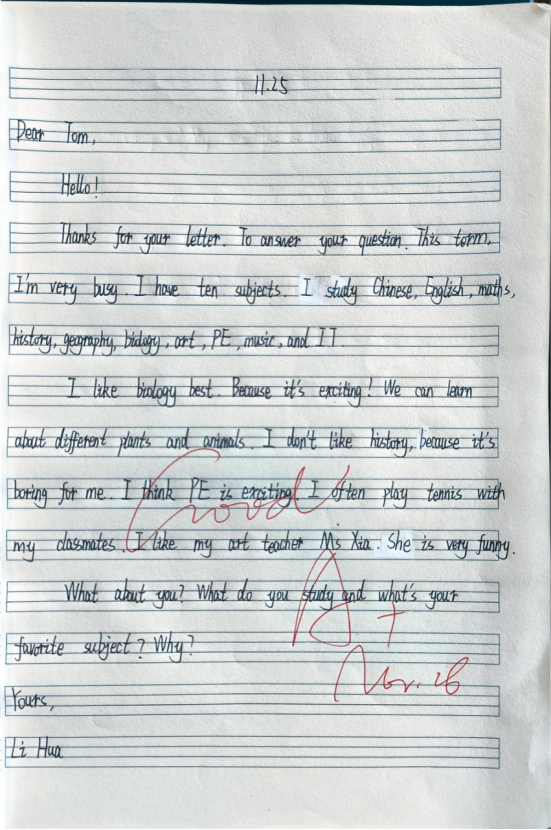 11.25
Dear Tom,
Hello!
Thanks for your letter. To answer your question. This term,
I'm very busy. I have ten subjects. I study Chinese, English, maths,
history, geography, biology, art, PE, music, and IT.
I like biology best. Because it's exciting! We can learn
about different plants and animals. I don't like history, because it's
boring for me. I think PE is exciting! I often play tennis with
Good
my classmates. I like my art teacher Ms Xia. She is very funny.
What about you? What do you study and what's your
A+
favorite subject? Why?
Nov. 26
Yours,
Li Hua